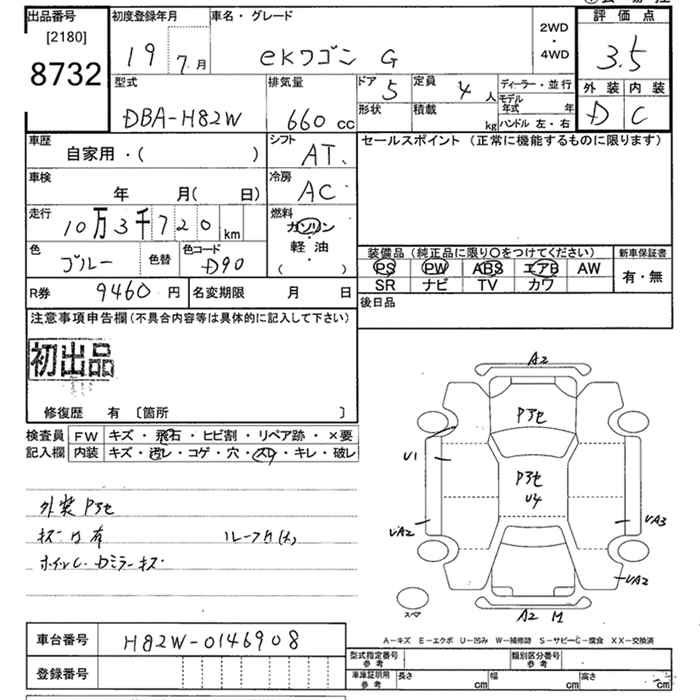 出品番号 初度登録年月 車名・グレード 2WD・4WD 評価点
[2180]
8732 19 7月 eKワゴン G 3.5
型式 排気量 ドア 5 定員 4人 ディーラー・並行 外装 内装
DBA-H82W 660cc 形状 積載 kg モデル年式 年 D C
ハンドル 左・右
車歴 シフト セールスポイント (正常に機能するものに限ります)
自家用・( ) AT.
車検 冷房
年 月( 日) AC
走行 燃料
10万3千720km ガソリン・軽油・( )
色 色替 色コード 装備品(純正品に限り○をつけてください) 新車保証書
ブルー D90 PS PW ABS エアB AW 有・無
SR ナビ TV カワ
R券 9460円 名変期限 月 日 後日品
注意事項申告欄(不具合内容等は具体的に記入して下さい)
初出品
修復歴 有 〔箇所 〕
検査員 FW キズ・飛石・ヒビ割・リペア跡・×要
記入欄 内装 キズ・汚レ・コゲ・穴・スレ・キレ・破レ
A2
Pアセ
U1
Pアセ
U4
UA2 UA3
UA2
スペア
A2 M
外装Pアセ
キズ凹有
ホイルC.Dミラーキズ
A-キズ E-エクボ U-凹み W-補修跡 S-サビ C-腐食 XX-交換済
車台番号 H82W-0146908
型式指定番号 参考 類別区分番号 参考
登録番号 車庫証明用 参考 長さ cm 幅 cm 高さ cm